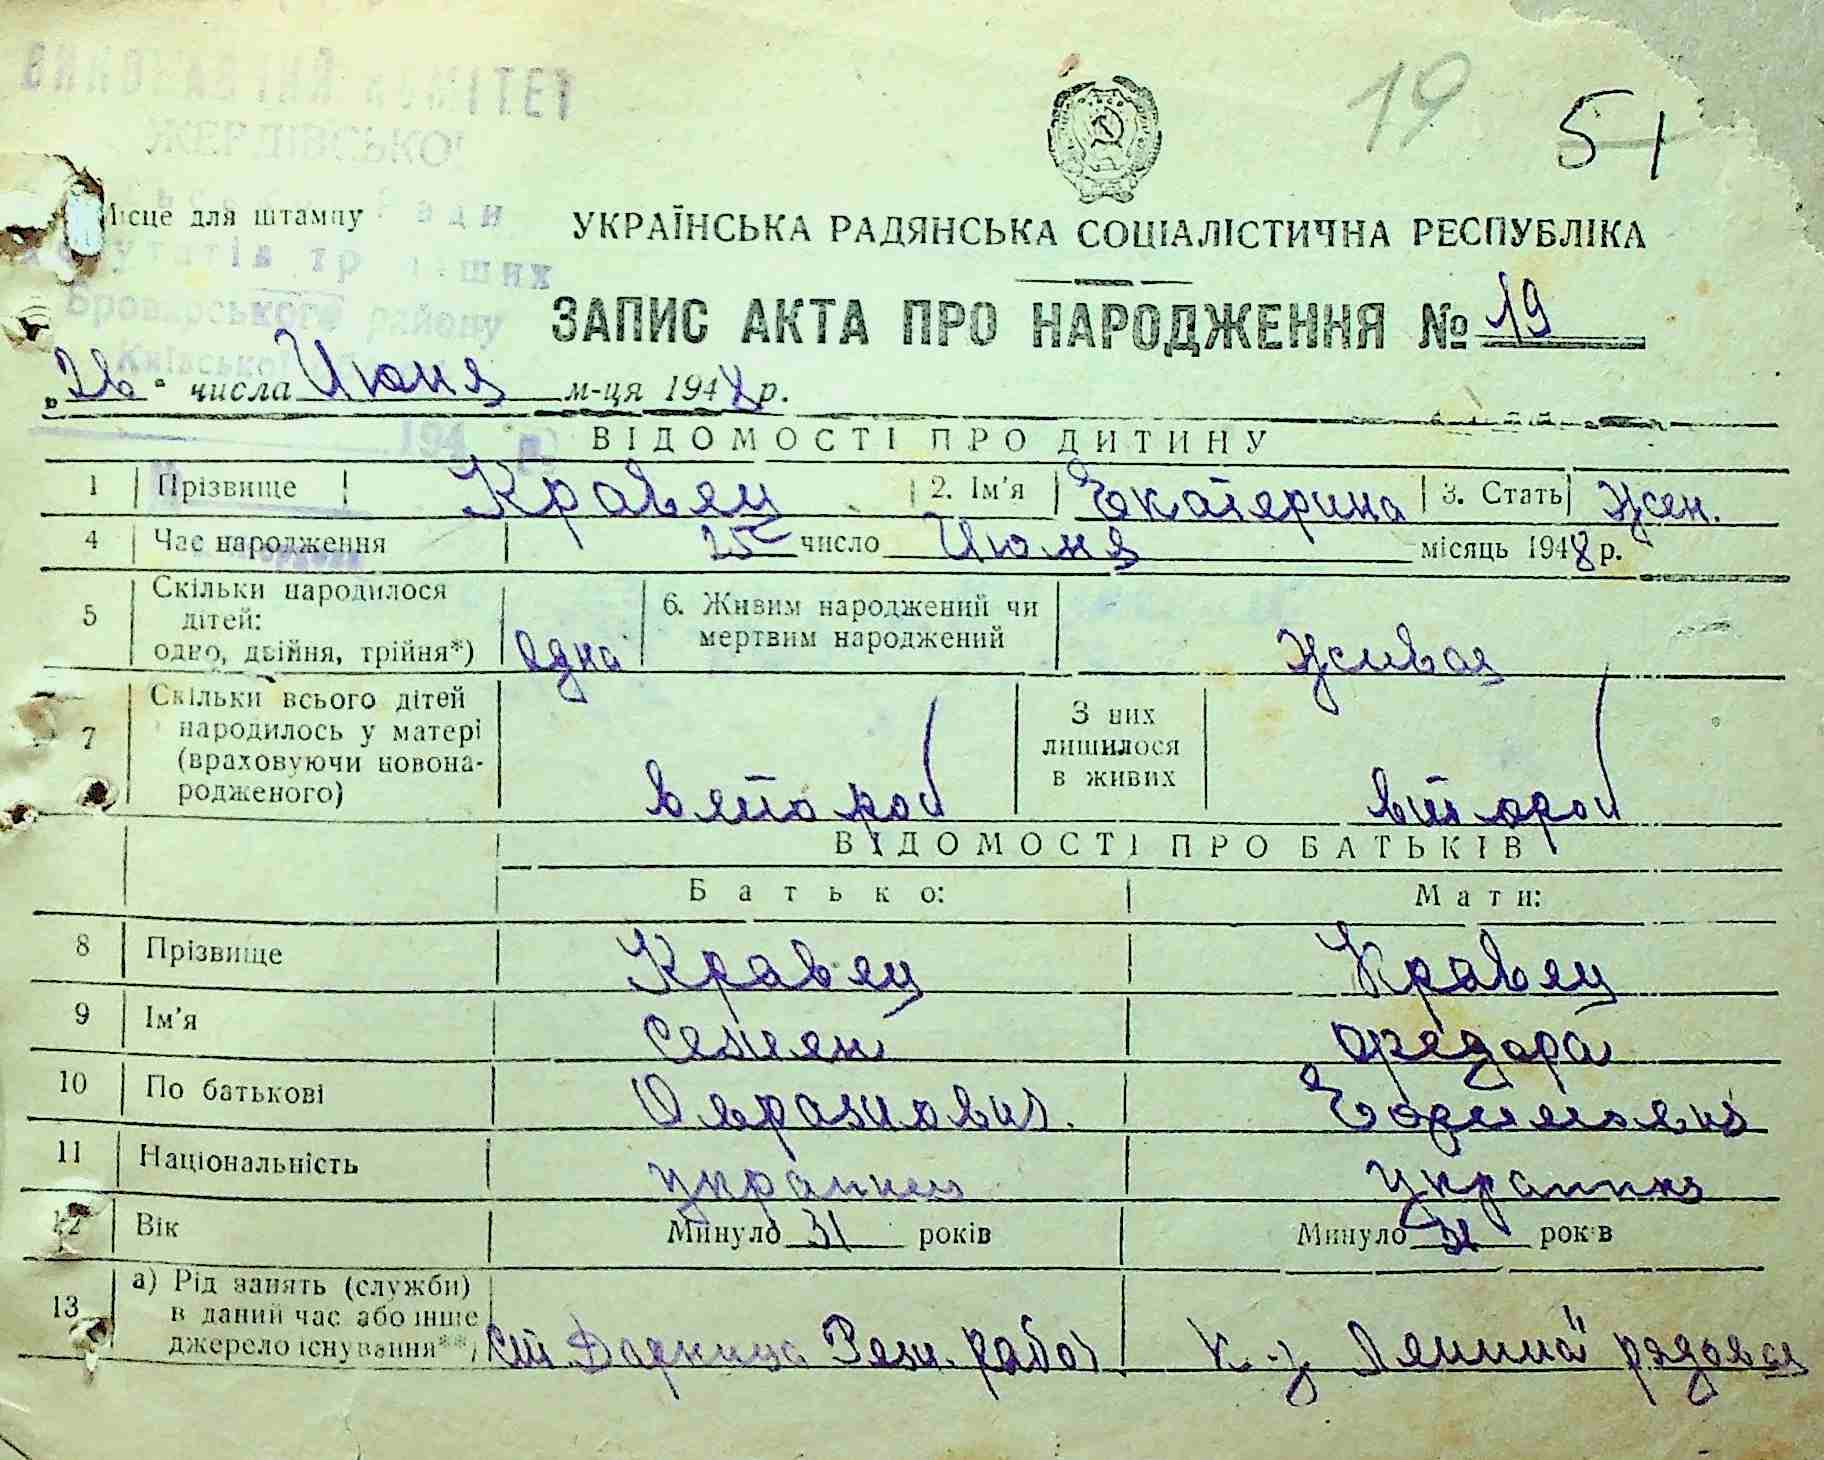 19 51
ВИКОНАВЧИЙ КОМІТЕТ
ЖЕРДІВСЬКОЇ
Ради
Місце для штампу
депутатів трудящих
Броварського району
Київської
УКРАЇНСЬКА РАДЯНСЬКА СОЦІАЛІСТИЧНА РЕСПУБЛІКА
ЗАПИС АКТА ПРО НАРОДЖЕННЯ № 19
„28" числа Июня м-ця 1948 р.
194 р.
ВІДОМОСТІ ПРО ДИТИНУ
1 Прізвище Кравец 2. Ім'я Екатерина 3. Стать Жен.
4 Час народження 25 число Июня місяць 1948 р.
5 Скільки народилося дітей: одно, двійня, трійня*) одна 6. Живим народжений чи мертвим народжений живая
7 Скільки всього дітей народилось у матері (враховуючи новонародженого) второй З них лишилося в живих второй
ВІДОМОСТІ ПРО БАТЬКІВ
Батько: Мати:
8 Прізвище Кравец Кравец
9 Ім'я Семен
10 По батькові
11 Національність украинец украинка
12 Вік Минуло 31 років Минуло 31 років
13 а) Рід занять (служби) в даний час або інше джерело існування**) ст. Дарница рабоч к-з Ленина рядовая